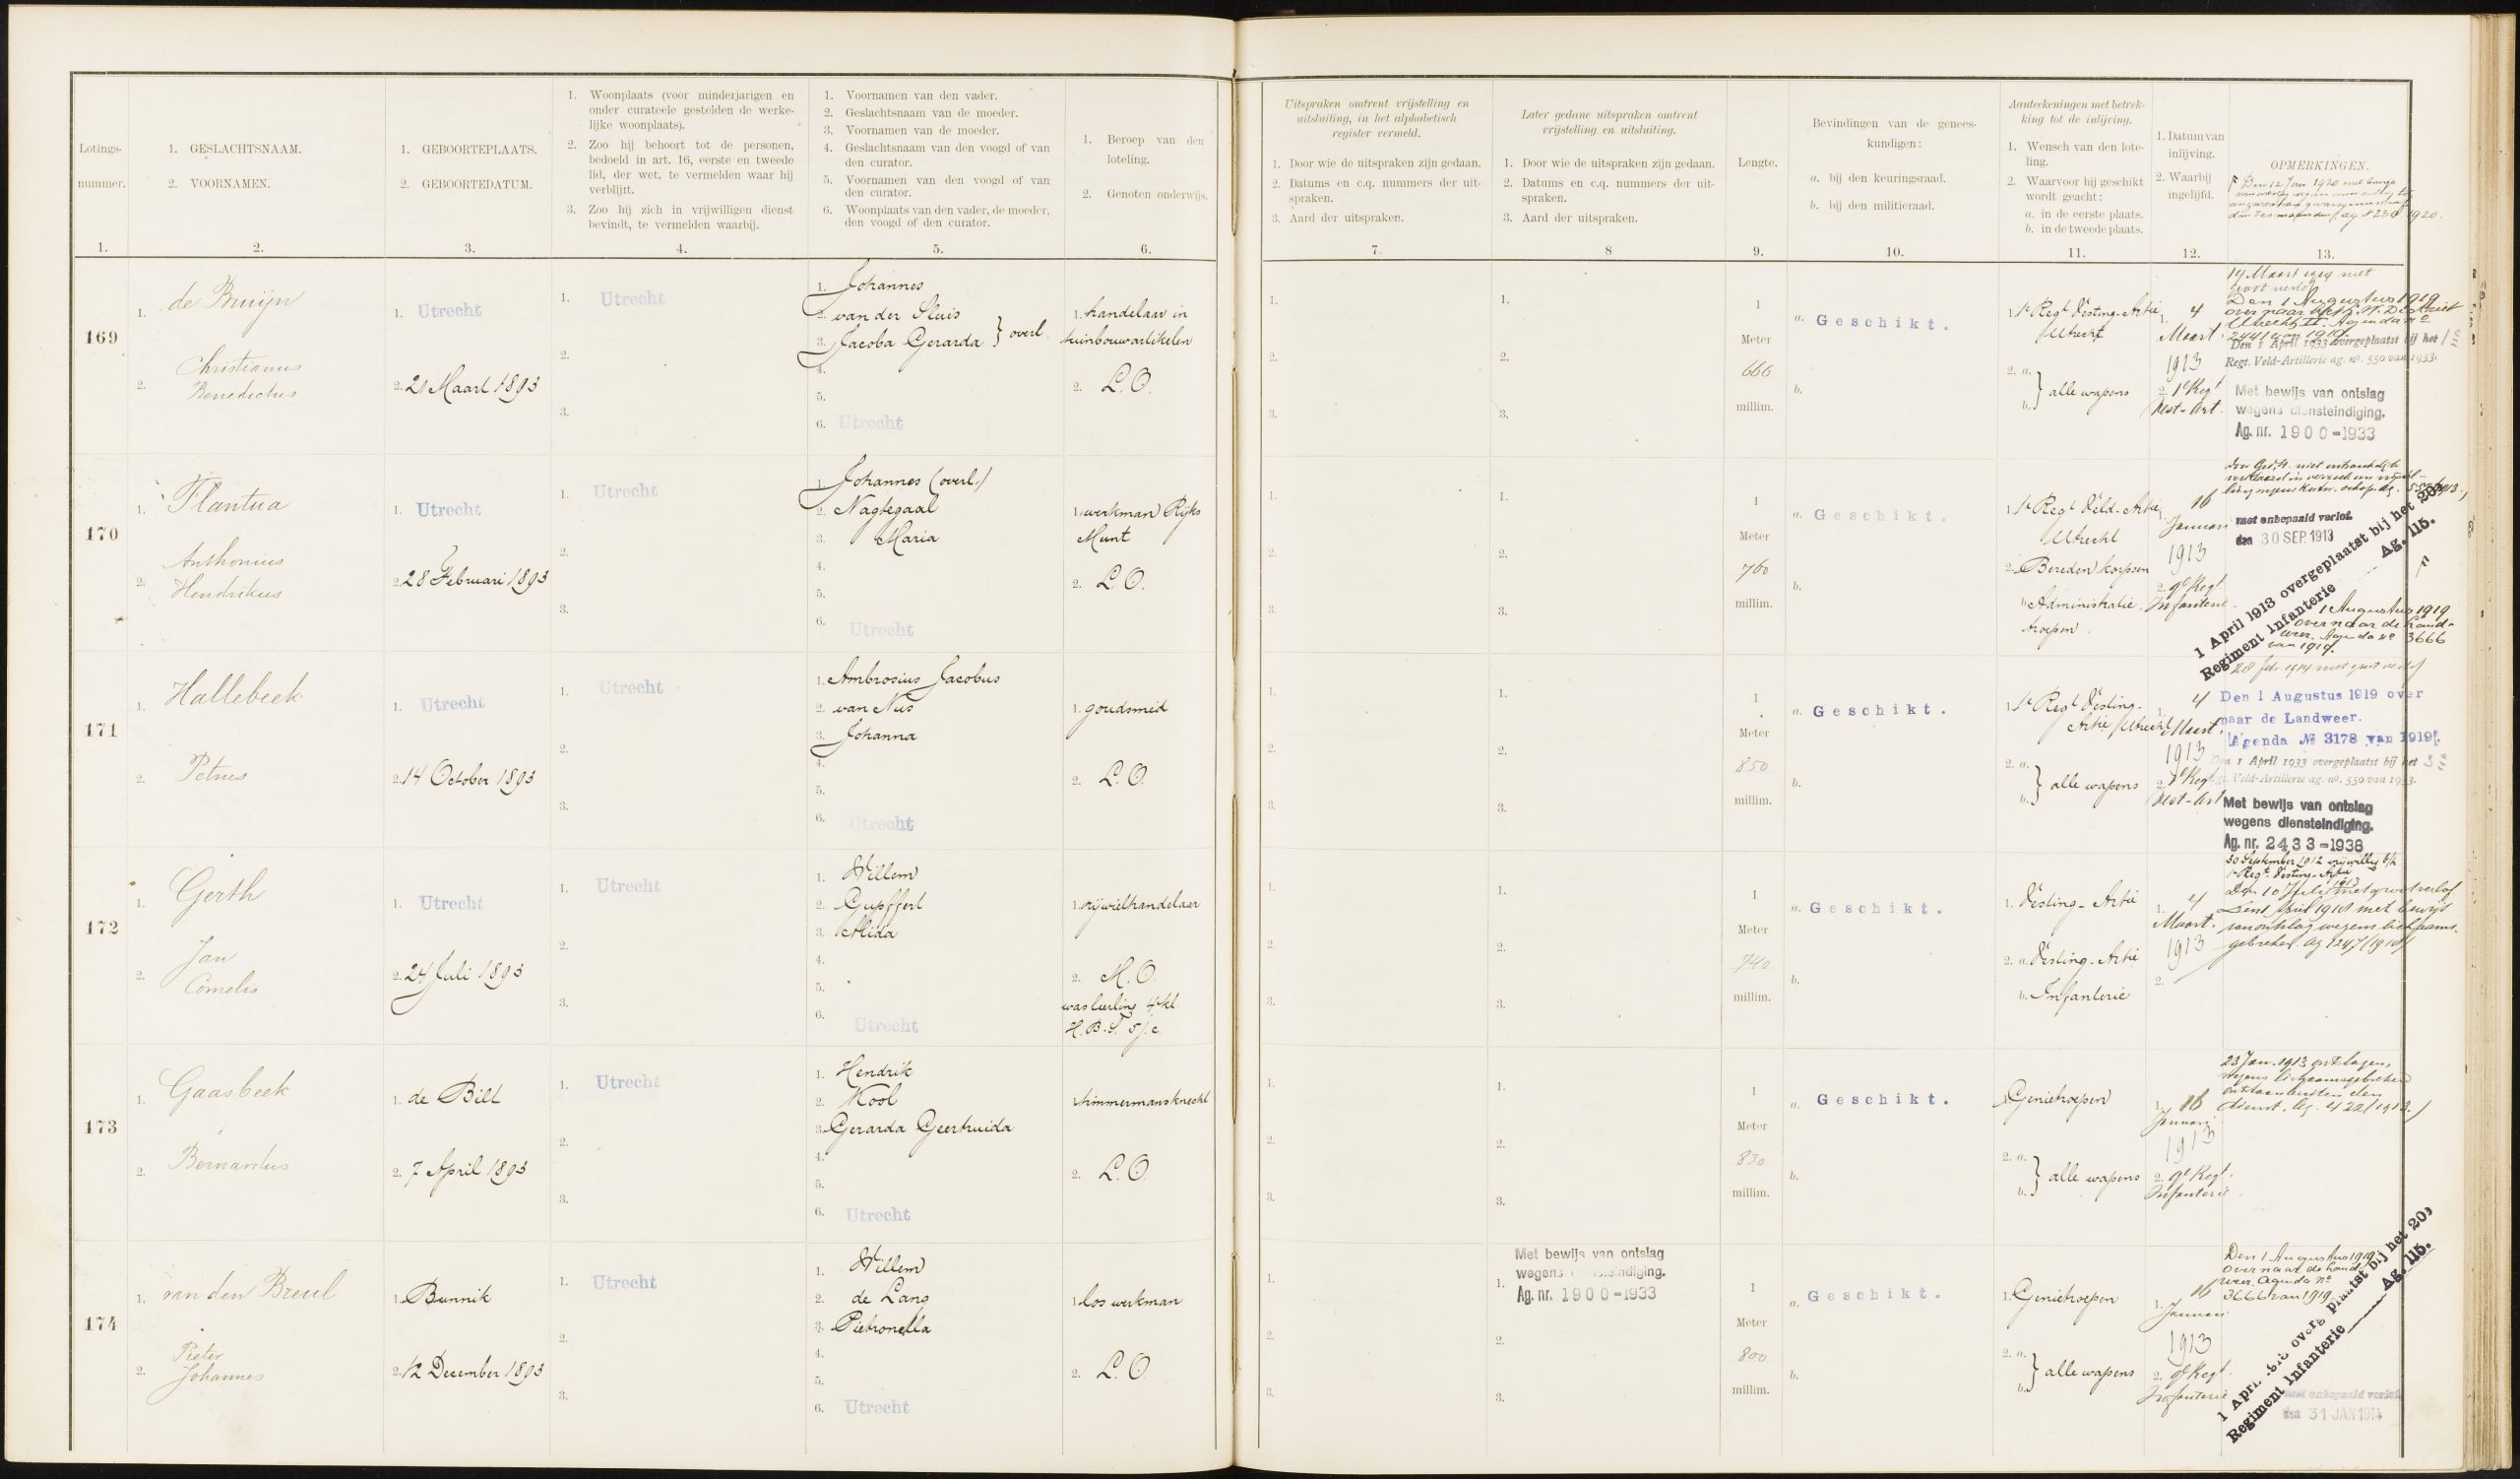 Lotings-
nummer.
1.
1. GESLACHTSNAAM.
2. VOORNAMEN.
2.
1. GEBOORTEPLAATS.
2. GEBOORTEDATUM.
3.
1. Woonplaats (voor minderjarigen en
onder curateele gestelden de werke-
lijke woonplaats).
2. Zoo hij behoort tot de personen,
bedoeld in art. 16, eerste en tweede
lid, der wet, te vermelden waar hij
verblijft.
3. Zoo hij zich in vrijwilligen dienst
bevindt, te vermelden waarbij.
4.
1. Voornamen van den vader.
2. Geslachtsnaam van de moeder.
3. Voornamen van de moeder.
4. Geslachtsnaam van den voogd of van
den curator.
5. Voornamen van den voogd of van
den curator.
6. Woonplaats van den vader, de moeder,
den voogd of den curator.
5.
1. Beroep van den
loteling.
2. Genoten onderwijs.
6.
Uitspraken omtrent vrijstelling en
uitsluiting, in het alphabetisch
register vermeld.
1. Door wie de uitspraken zijn gedaan.
2. Datums en c.q. nummers der uit-
spraken.
3. Aard der uitspraken.
7.
Later gedane uitspraken omtrent
vrijstelling en uitsluiting.
1. Door wie de uitspraken zijn gedaan.
2. Datums en c.q. nummers der uit-
spraken.
3. Aard der uitspraken.
8
Lengte.
9.
Bevindingen van de genees-
kundigen:
a. bij den keuringsraad.
b. bij den militieraad.
10.
Aanteekeningen met betrek-
king tot de inlijving.
1. Wensch van den lote-
ling.
2. Waarvoor hij geschikt
wordt geacht:
a. in de eerste plaats.
b. in de tweede plaats.
11.
1. Datum van
inlijving.
2. Waarbij
ingelijfd.
12.
OPMERKINGEN.
Den 12 Jan 1920 met bewijs
1920.
13.
169
1. de Bruijn
2. Christianus
Benedictus
1. Utrecht
2. 21 Maart 1893
1. Utrecht
2.
3.
1. Johannes
2. van der Sluis
3. Jacoba Gerarda } overl.
4.
5.
6. Utrecht
1. handelaar in
tuinbouwartikelen
2. L.O.
1.
2.
3.
1.
2.
3.
1
Meter
666
millim.
a. Geschikt.
b.
1. 1e Regt Vesting-Artie
Utrecht
2. a.
b. } alle wapens
1. 4
Maart
1913
2. 1e Regt
Vest-Art.
14 Maart 1914 met
groot verlof
Den 1 Augustus 1919
over naar
Utrecht II. Agenda No
2441 van 1919.
Den 1 April 1933 overgeplaatst bij het
Regt. Veld-Artillerie ag. no. 550 van 1933.
Met bewijs van ontslag
wegens diensteindiging.
Ag. nr. 1900-1933
170
1. Plantua
2. Anthonius
Hendrikus
1. Utrecht
2. 28 Februari 1893
1. Utrecht
2.
3.
1. Johannes (overl.)
2. Nagtegaal
3. Maria
4.
5.
6. Utrecht
1. werkman Rijks
Munt
2. L.O.
1.
2.
3.
1.
2.
3.
1
Meter
760
millim.
a. Geschikt.
b.
1. 1e Regt Veld-Artie
Utrecht
2. Bereden korpsen
b. Administratie
troepen
1. 16
Januari
1913
2. 9e Regt
Infanterie
met onbepaald verlof.
den 30 SEP. 1913
1 April 1913 overgeplaatst bij het 20e
Regiment Infanterie Ag. 115.
1 Augustus 1919
over naar de Land-
weer. Agenda No 3666
van 1919.
171
1. Hallebeek
2. Petrus
1. Utrecht
2. 14 October 1893
1. Utrecht
2.
3.
1. Ambrosius Jacobus
2. van Nus
3. Johanna
4.
5.
6. Utrecht
1. goudsmid
2. L.O.
1.
2.
3.
1.
2.
3.
1
Meter
850
millim.
a. Geschikt.
b.
1. 1e Regt Vesting-
Artie Utrecht
2. a.
b. } alle wapens
1. 4
Maart
1913
2. 1e Regt
Vest-Art
28 feb. 1914 met groot verlof
Den 1 Augustus 1919 over
naar de Landweer.
Agenda No 3178 van 1919.
Den 1 April 1933 overgeplaatst bij het
Regt. Veld-Artillerie ag. no. 550 van 1933.
Met bewijs van ontslag
wegens diensteindiging.
Ag. nr. 2433-1938
172
1. Gerth
2. Jan
Cornelis
1. Utrecht
2. 24 Juli 1893
1. Utrecht
2.
3.
1. Willem
2. Gupffert
3. Alida
4.
5.
6. Utrecht
1. rijwielhandelaar
2. M.O.
was leerling 4e kl
H.B.S. 5 j.c.
1.
2.
3.
1.
2.
3.
1
Meter
740
millim.
a. Geschikt.
b.
1. Vesting-Artie
2. a. Vesting-Artie
b. Infanterie
1. 4
Maart.
1913
2.
30 September 1912 vrijwillig b/h
1e Regt Vesting-Artie
Den 10 Juli 1913 met groot verlof
April 1918 met bewijs
van ontslag wegens lichaams-
gebreken. Ag 1247/1918
173
1. Gaasbeek
2. Bernardus
1. de Bilt
2. 7 April 1893
1. Utrecht
2.
3.
1. Hendrik
2. Kool
3. Gerarda Geertruida
4.
5.
6. Utrecht
1. timmermansknecht
2. L.O.
1.
2.
3.
1.
2.
3.
1
Meter
830
millim.
a. Geschikt.
b.
1. Genietroepen
2. a.
b. } alle wapens
1. 16
Januari
1913
2. 9e Regt.
Infanterie
23 Jan. 1913 ontslagen,
wegens lichaamsgebreken
ontstaan buiten den
dienst. Ag. 422/1913.
174
1. van den Breul
2. Pieter
Johannes
1. Bunnik
2. 12 December 1893
1. Utrecht
2.
3.
1. Willem
2. de Lang
3. Pietronella
4.
5.
6. Utrecht
1. los werkman
2. L.O.
1.
2.
3.
Met bewijs van ontslag
wegens diensteindiging.
Ag. nr. 1900-1933
1.
2.
3.
1
Meter
800
millim.
a. Geschikt.
b.
1. Genietroepen
2. a.
b. } alle wapens
1. 16
Januari
1913
2. 9e Regt
Infanterie
Den 1 Augustus 1919
over naar de Land-
weer. Agenda No
3666 van 1919
1 April 1913 overgeplaatst bij het 20e
Regiment Infanterie Ag. 115.
met onbepaald verlof.
den 31 JAN 1914